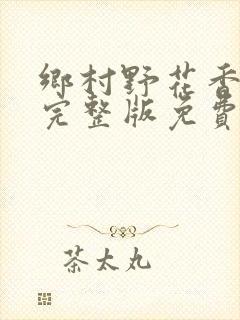 鄉村野花香
完整版免費
茶太丸